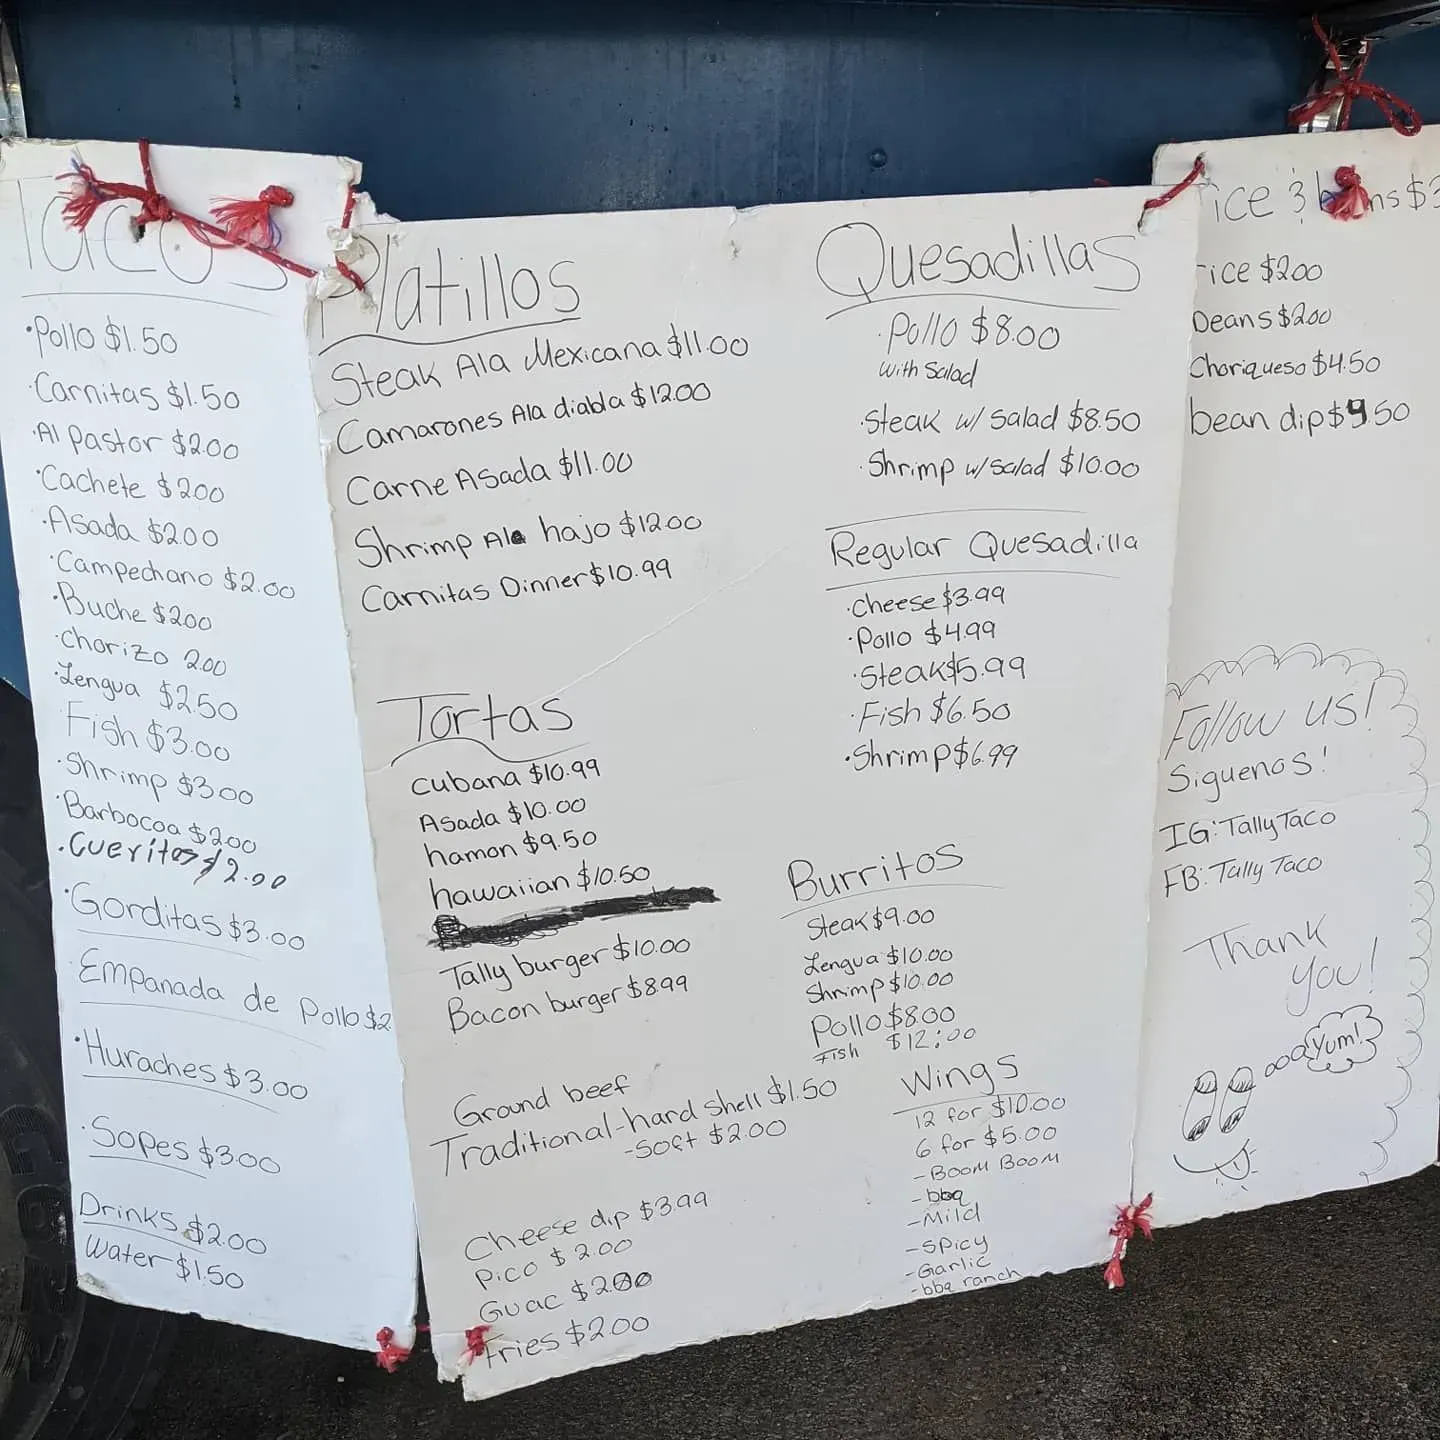 Tacos
·Pollo $1.50
·Carnitas $1.50
·Al pastor $2.00
·Cachete $2.00
·Asada $2.00
·Campechano $2.00
·Buche $2.00
·Chorizo 2.00
·Lengua $2.50
·Fish $3.00
·Shrimp $3.00
·Barbocoa $2.00
·Cueritos $2.00
·Gorditas $3.00
·Empanada de Pollo $2
·Huraches $3.00
·Sopes $3.00
Drinks $2.00
Water $1.50
Platillos
Steak Ala Mexicana $11.00
Camarones Ala diabla $12.00
Carne Asada $11.00
Shrimp Ala hajo $12.00
Carnitas Dinner $10.99
Tortas
cubana $10.99
Asada $10.00
hamon $9.50
hawaiian $10.50
Tally burger $10.00
Bacon burger $8.99
Ground beef
Traditional-hard shell $1.50
-Soft $2.00
Cheese dip $3.99
Pico $2.00
Guac $2.00
Fries $2.00
Quesadillas
·Pollo $8.00
with Salad
·Steak w/ Salad $8.50
·Shrimp w/ Salad $10.00
Regular Quesadilla
·Cheese $3.99
·Pollo $4.99
·Steak $5.99
·Fish $6.50
·Shrimp $6.99
Burritos
Steak $9.00
Lengua $10.00
Shrimp $10.00
Pollo $8.00
Fish $12:00
Wings
12 for $10.00
6 for $5.00
-BOOM BOOM
-bbq
-Mild
-Spicy
-Garlic
-bbq ranch
rice & beans $3
rice $2.00
beans $2.00
Choriqueso $4.50
bean dip $9.50
Follow us!
Siguenos!
IG: TallyTaco
FB: Tally Taco
Thank
you!
Yum!